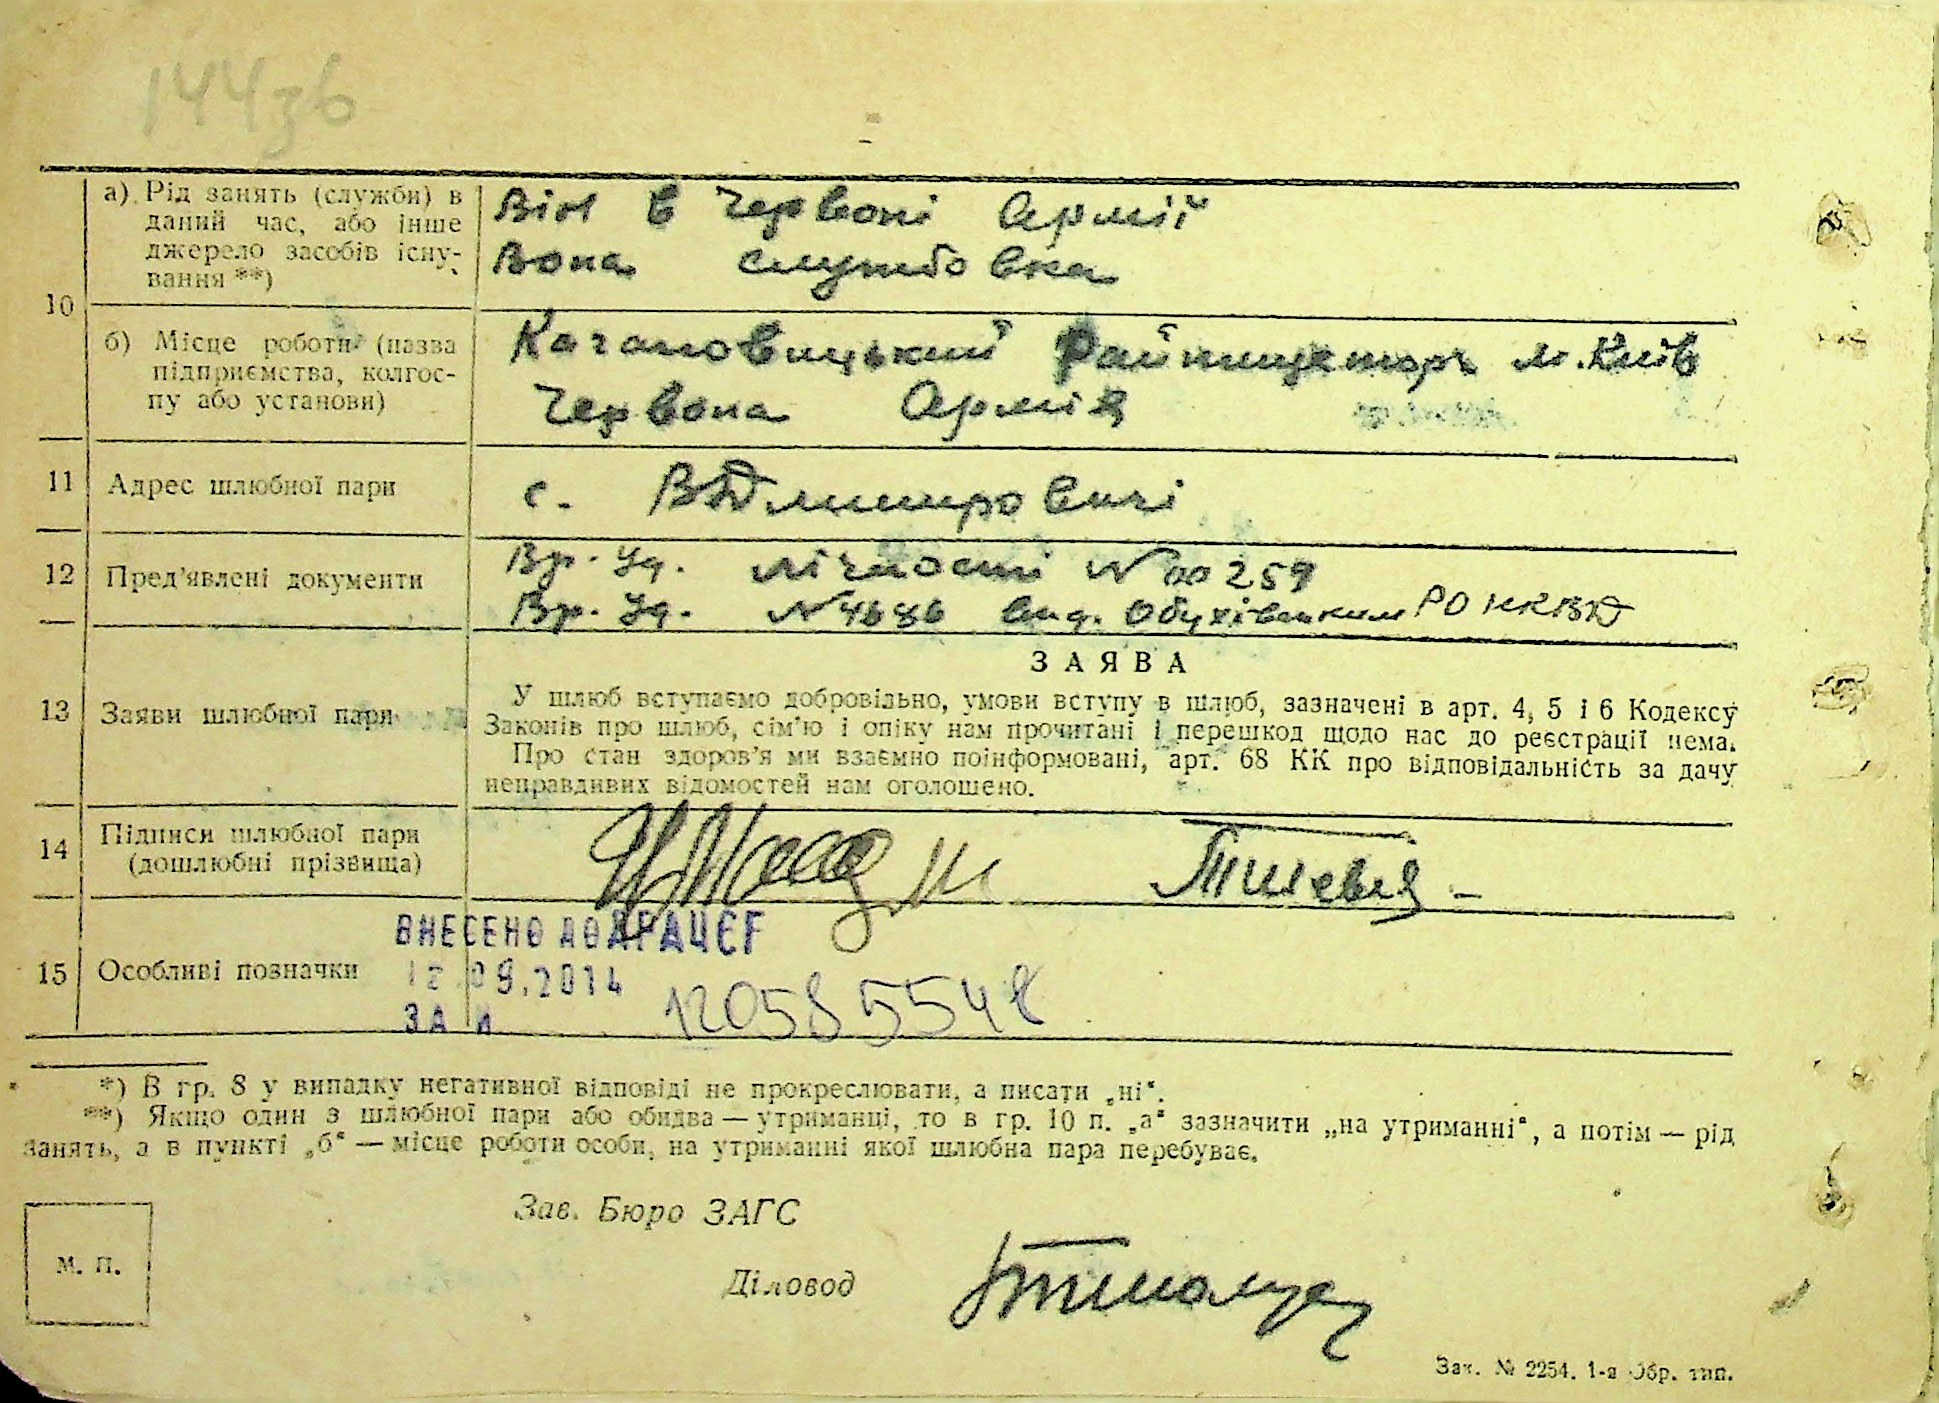 144зв
а) Рід занять (служби) в
даний час, або інше
джерело засобів існу-
вання **)
Він в Червоні Армії
Вона службовка
10
б) Місце роботи (назва
підприємства, колгос-
пу або установи)
Качановицький Райпищеторг м. Київ
Червона Армія
11 Адрес шлюбної пари
с. В Дмитровичі
12 Пред'явлені документи
Вр. Уд. лічності № 00259
Вр. Уд. № 4686 вид. Обухівським РО НКВД
ЗАЯВА
13 Заяви шлюбної пари
У шлюб вступаємо добровільно, умови вступу в шлюб, зазначені в арт. 4, 5 і 6 Кодексу
Законів про шлюб, сім'ю і опіку нам прочитані і перешкод щодо нас до реєстрації нема.
Про стан здоров'я ми взаємно поінформовані, арт. 68 КК про відповідальність за дачу
неправдивих відомостей нам оголошено.
14 Підписи шлюбної пари
(дошлюбні прізвища)
ВНЕСЕНО ДО ДРАЦСГ
15 Особливі позначки
12.09.2014
ЗА
1205855548
*) В гр. 8 у випадку негативної відповіді не прокреслювати, а писати „ні“.
**) Якщо один з шлюбної пари або обидва — утриманці, то в гр. 10 п. „а“ зазначити „на утриманні“, а потім — рід
занять, а в пункті „б“ — місце роботи особи, на утриманні якої шлюбна пара перебуває.
Зав. Бюро ЗАГС
М. П.
Діловод
Зак. № 2254. 1-а Обр. тип.